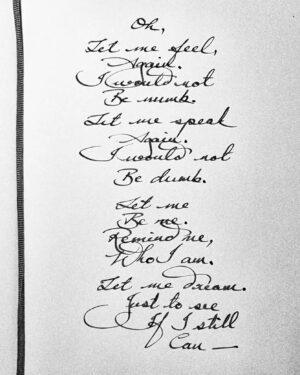 Oh,
Let me feel,
Again.
I would not
Be numb.
Let me speak
Again.
I would not
Be dumb.
Let me
Be me.
Remind me,
Who I am.
Let me dream.
Just to see
If I still
Can —